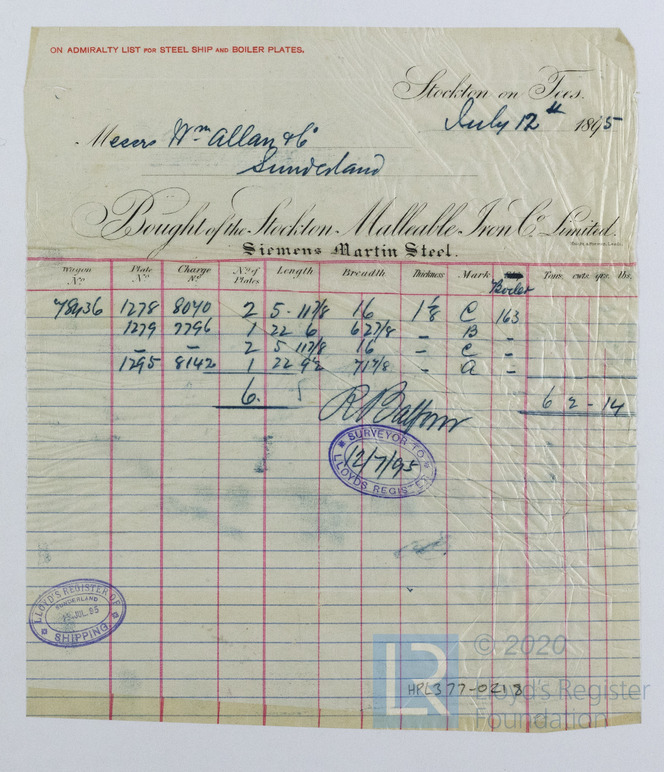 ON ADMIRALTY LIST FOR STEEL SHIP AND BOILER PLATES.
Stockton on Tees.
July 12th 1895
Messrs Wm Allan & Co
Sunderland
Bought of the Stockton Malleable Iron Co Limited.
Siemens Martin Steel.
Wagon No. Plate No. Charge No. No. of Plates Length Breadth Thickness Mark Boiler Tons. cwts. qrs. lbs.
78436 1278 8040 2 5 - 11 7/8 16 1 1/8 C 163
1279 7796 1 22 6 62 7/8 " B "
" " 2 5 11 7/8 16 " C "
1295 8142 1 22 9 1/2 71 7/8 " A "
6. 6 2 - 14
R Balfour
SURVEYOR TO
12/7/95
LLOYDS REGISTER
LLOYD'S REGISTER OF
SUNDERLAND
JUL. 95
SHIPPING
© 2020
LR
HPL377-0218
Lloyd's Register
Foundation